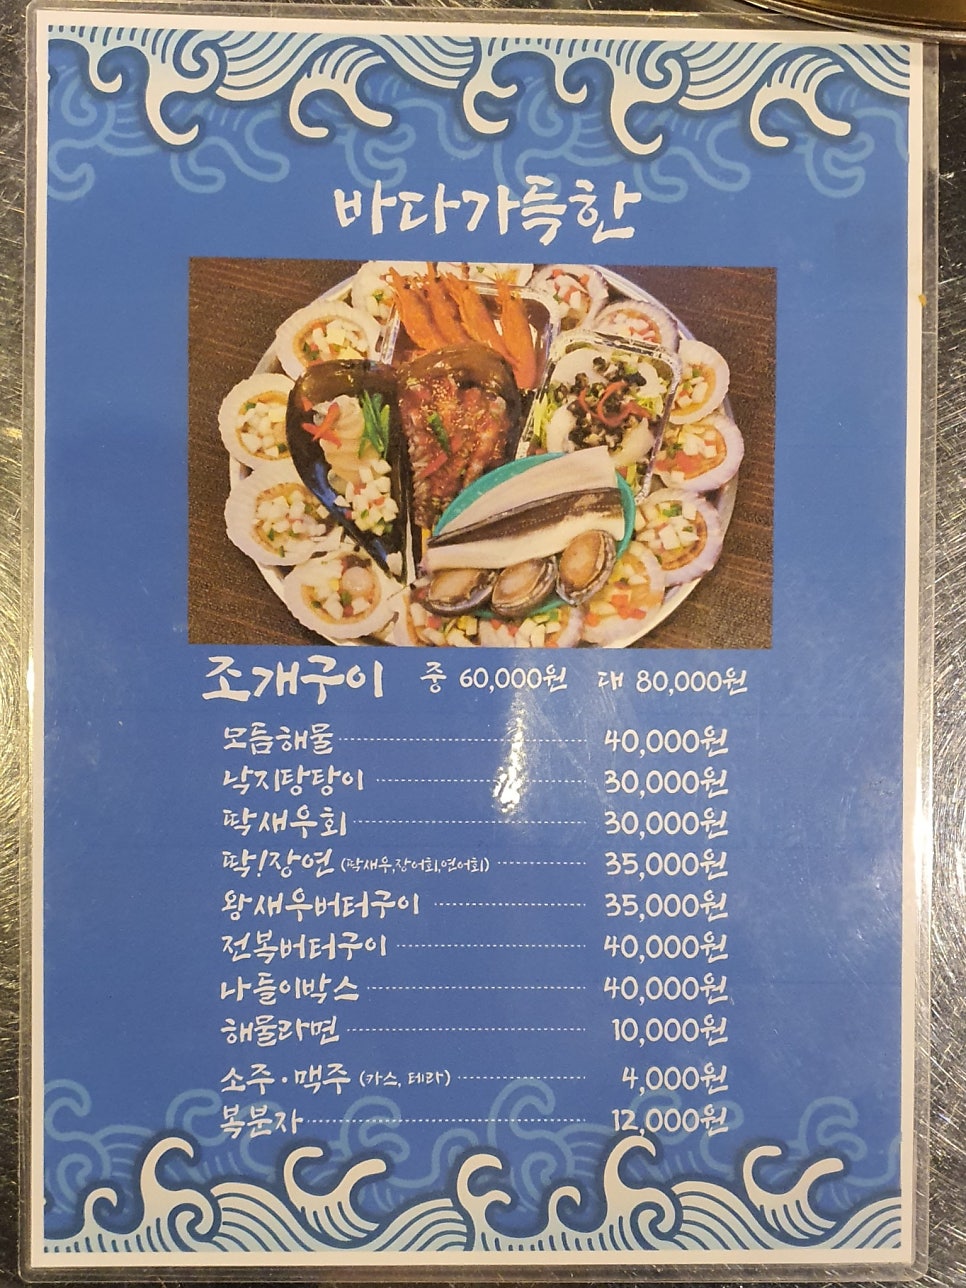 바다가득한
조개구이 중 60,000원 대 80,000원
모듬해물 40,000원
낙지탕탕이 30,000원
딱새우회 30,000원
딱!장연 (딱새우,장어회,연어회) 35,000원
왕새우버터구이 35,000원
전복버터구이 40,000원
나들이박스 40,000원
해물라면 10,000원
소주·맥주 (카스, 테라) 4,000원
복분자 12,000원